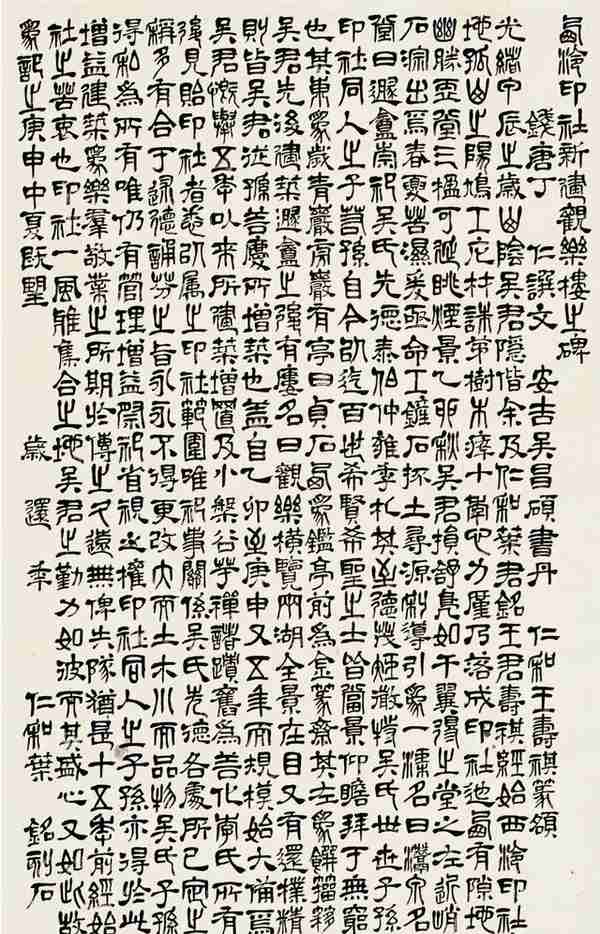 西泠印社新建觀樂樓之碑
錢唐丁仁譔文 安吉吳昌碩書丹 仁和王壽祺篆頟
光緒甲辰之歲山陰吳君隱偕余及仁和葉君銘王君壽祺經始西泠印社
地孤山之陽鳩工庀材誅茅樹木瘁十年心力廑乃落成印社迆西有隙地
幽勝堂三楹可延眺煙景乙卯秋吳君損舒鳧如干翼得之堂之左近峭
石淙出焉春夏苦濕爰亟命工鏟石抔土尋源利導引爲一名曰潛泉名
堂曰遯盦崇祀吳氏先德泰伯仲雍季札其至德茂矩吳氏世世子孫
印社同人之子若孫自今以迄百世希賢希聖之士皆聞景仰瞻拜于無窮
也其東爲歲青巖巖有亭曰貞石西爲鑑亭前爲金篆齋其左爲籀簃
吳君先後建築遯盦之後有廔名曰觀樂橫覽兩湖全景在目又有還樸精
則皆吳君從孫善慶所增築也蓋自乙卯至庚申又五年而規模始大備焉
吳君慨擧五年以來所建築增置及小盤谷芋禪諸蹟舊爲善化李氏所有
後見貽印社者悉以屬之印社範圍唯祀事關係吳氏先德各處所已定之
稱多有合于述德誦芬之旨永永不得更改大而土木小而品物吳氏子孫
得私爲所有唯仍有管理增益祭祀省視之權印社同人之子孫亦得於此
增益建築爲樂羣敬業之所期於傳之久遠無俾失隊猶是十五年前經始
社之苦衷也印社一風雅集合之地吳君之勤力如彼而其盛心又如此故
爲記之庚申中夏既朢 歲還年 仁和葉銘刻石